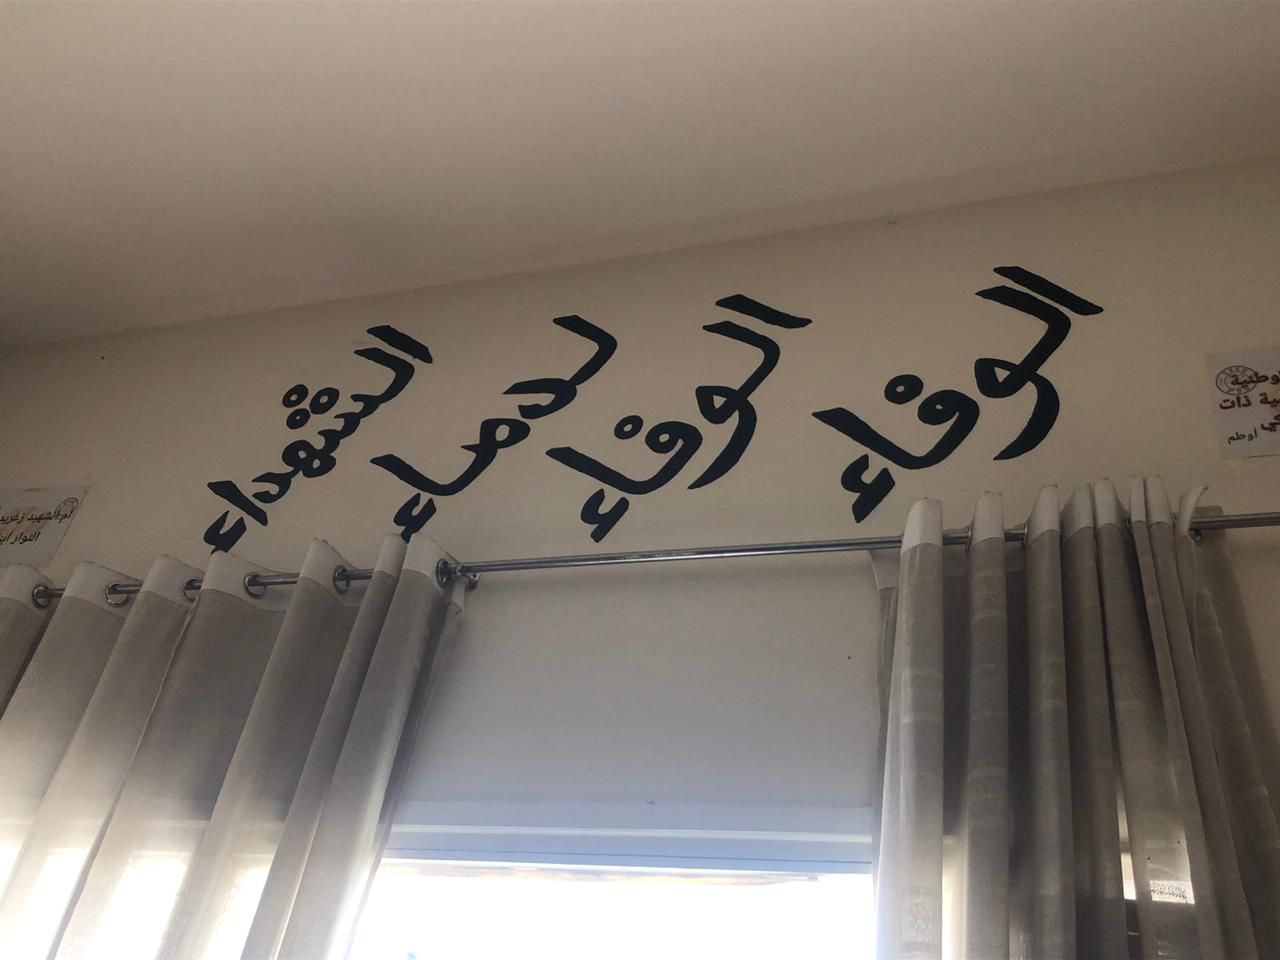 الوفاء الوفاء لدماء الشهداء
لوطنية
ية ذات
كي أوطم
أم الشهيد زغريد